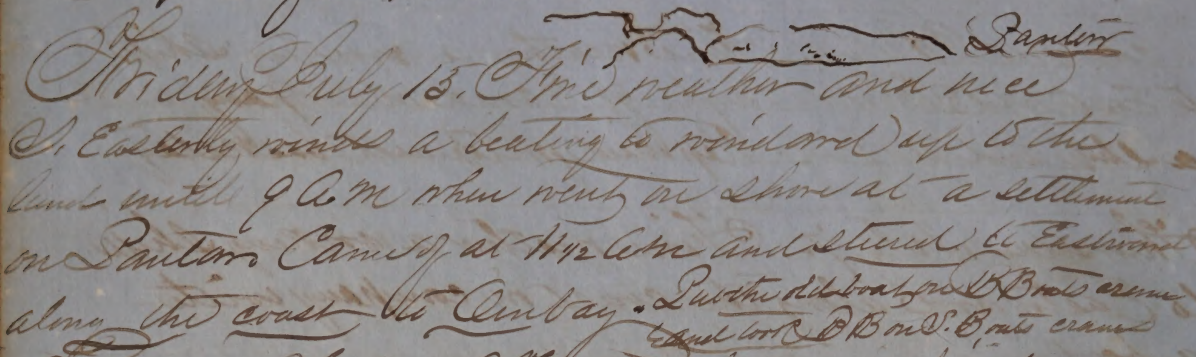 Pantar
Friday July 15. Fine weather and nice
S. Easterly winds a beating to windard up to the
land untill 9 A.M when went on shore at a settlement
on Pantar Came off at 11 1/2 A.M and steered to Eastward
along the coast to Ombay. Put the old boat on B Boats cranes
and took B B on S. Boats cranes